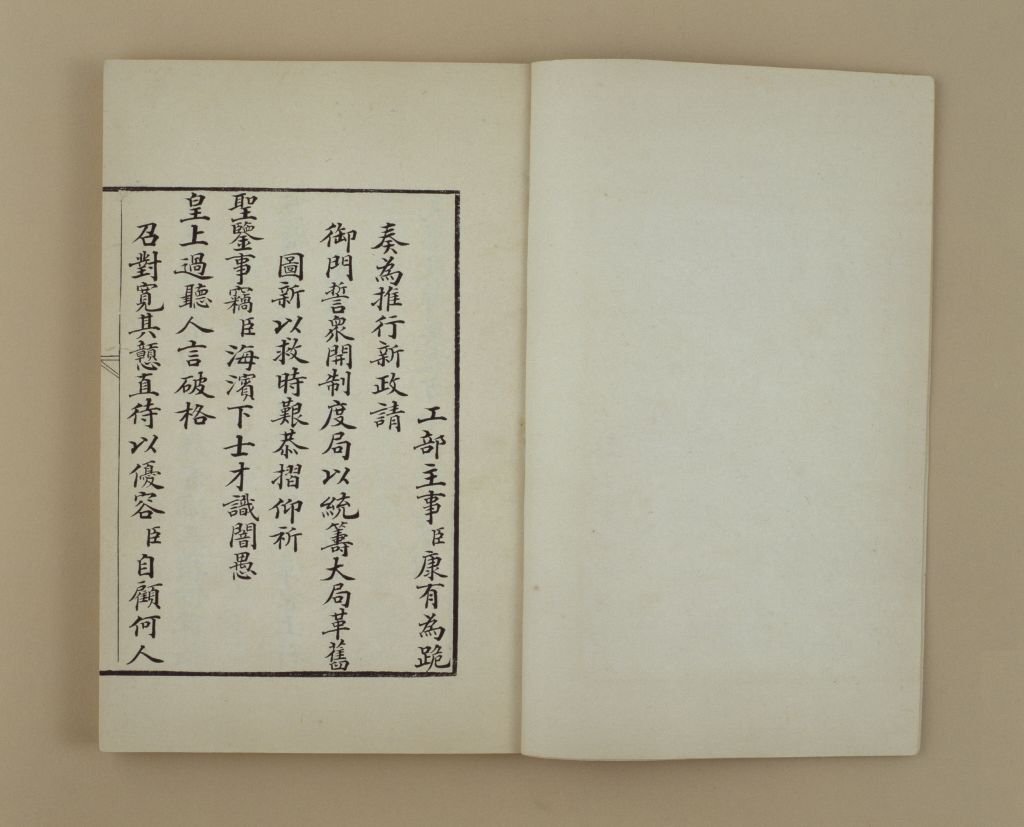 工部主事臣康有為跪
奏為推行新政請
御門誓衆開制度局以統籌大局革舊
圖新以救時艱恭摺仰祈
聖鑒事竊臣海濱下士才識闇愚
皇上過聽人言破格
召對寬其戇直待以優容臣自顧何人